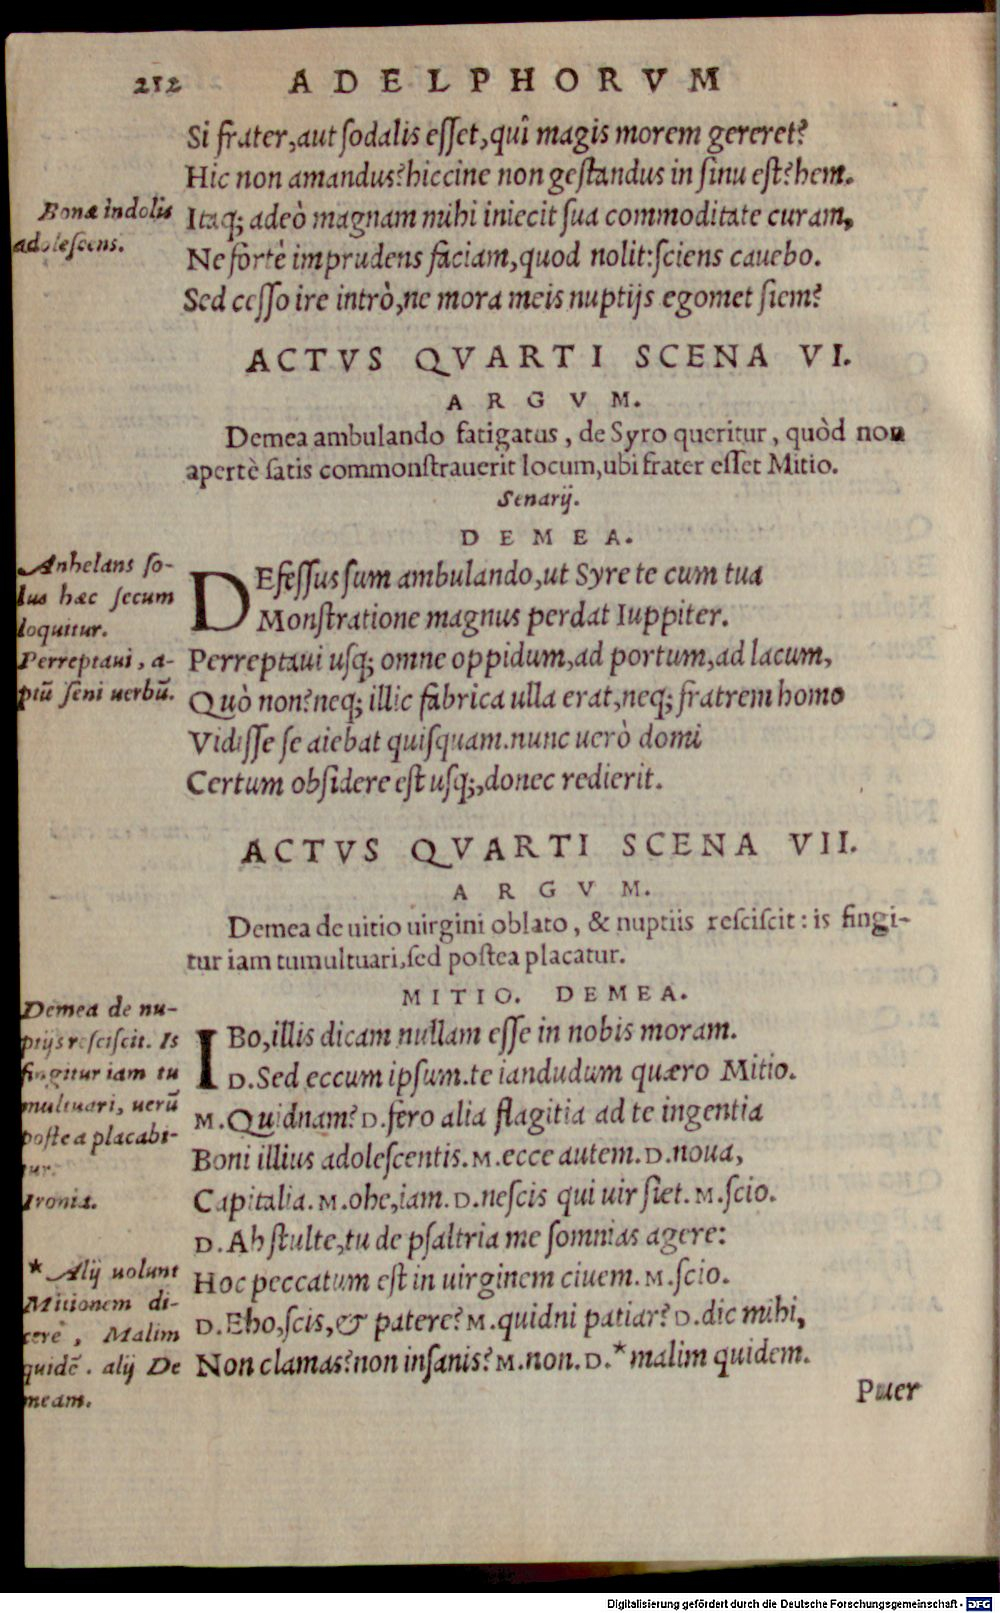 212 ADELPHORVM
Si frater, aut ſodalis eſſet, quî magis morem gereret?
Hic non amandus? hiccine non geſtandus in ſinu eſt? hem.
Itaq; adeò magnam mihi iniecit ſua commoditate curam,
Ne fortè imprudens faciam, quod nolit: ſciens cauebo.
Sed ceſſo ire intrò, ne mora meis nuptijs egomet ſiem?
Bonæ indolis
adoleſcens.
ACTVS QVARTI SCENA VI.
ARGVM.
Demea ambulando fatigatus, de Syro queritur, quòd non
apertè ſatis commonſtrauerit locum, ubi frater eſſet Mitio.
Senarij.
DEMEA.
DEfeſſus ſum ambulando, ut Syre te cum tua
Monſtratione magnus perdat Iuppiter.
Perreptaui uſq; omne oppidum, ad portum, ad lacum,
Quò non? neq; illic fabrica ulla erat, neq; fratrem homo
Vidiſſe ſe aiebat quiſquam. nunc uerò domi
Certum obſidere eſt uſq;, donec redierit.
Anhelans ſo-
lus hæc ſecum
loquitur.
Perreptaui, a-
ptū ſeni uerbū.
ACTVS QVARTI SCENA VII.
ARGVM.
Demea de uitio uirgini oblato, & nuptiis reſciſcit: is fingi-
tur iam tumultuari, ſed poſtea placatur.
MITIO. DEMEA.
IBo, illis dicam nullam eſſe in nobis moram.
D. Sed eccum ipſum. te iandudum quæro Mitio.
M. Quidnam? D. fero alia flagitia ad te ingentia
Boni illius adoleſcentis. M. ecce autem. D. noua,
Capitalia. M. ohe, iam. D. neſcis qui uir ſiet. M. ſcio.
D. Ah ſtulte, tu de pſaltria me ſomnias agere:
Hoc peccatum eſt in uirginem ciuem. M. ſcio.
D. Eho, ſcis, & patere? M. quidni patiar? D. dic mihi,
Non clamas? non inſanis? M. non. D. * malim quidem.
Demea de nu-
ptijs reſciſcit. Is
fingitur iam tu
multuari, uerū
poſtea placabi-
tur.
Ironia.
* Alij uolunt
Mitionem di-
cere, Malim
quidē. alij De
meam.
Puer
Digitalisierung gefördert durch die Deutsche Forschungsgemeinschaft - DFG